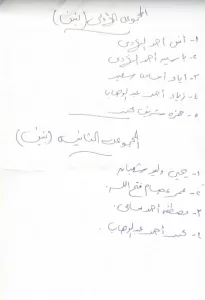 المجموعة الأولى (بنين)
١- أنس أحمد
٢- ياسين أحمد
٣- إياد أسامة سعيد
٤- زياد أحمد عبد الوهاب
٥- حمزة شريف محمد
المجموعة الثانية (بنين)
١- يحيى وليد شعبان
٢- عمر عصام فتح الله
٣- مصطفى أحمد
٤- محمد أحمد عبد الوهاب